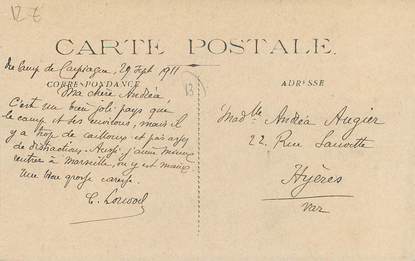 CARTE POSTALE
Du Camp de Carpiagne, 29 Sept 1911
CORRESPONDANCE
ADRESSE
Ma chère Andréa
C'est un bien joli pays que
le camp et ses environs, mais il
y a trop de cailloux et pas assez
de distractions. Aussi j'aime mieux
rentrer à Marseille, on y est mieux
Une grosse caresse.
Madlle Andréa Augier
22, Rue
Hyères
Var